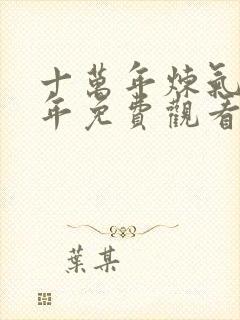 十萬年煉氣
年免費觀看
葉某